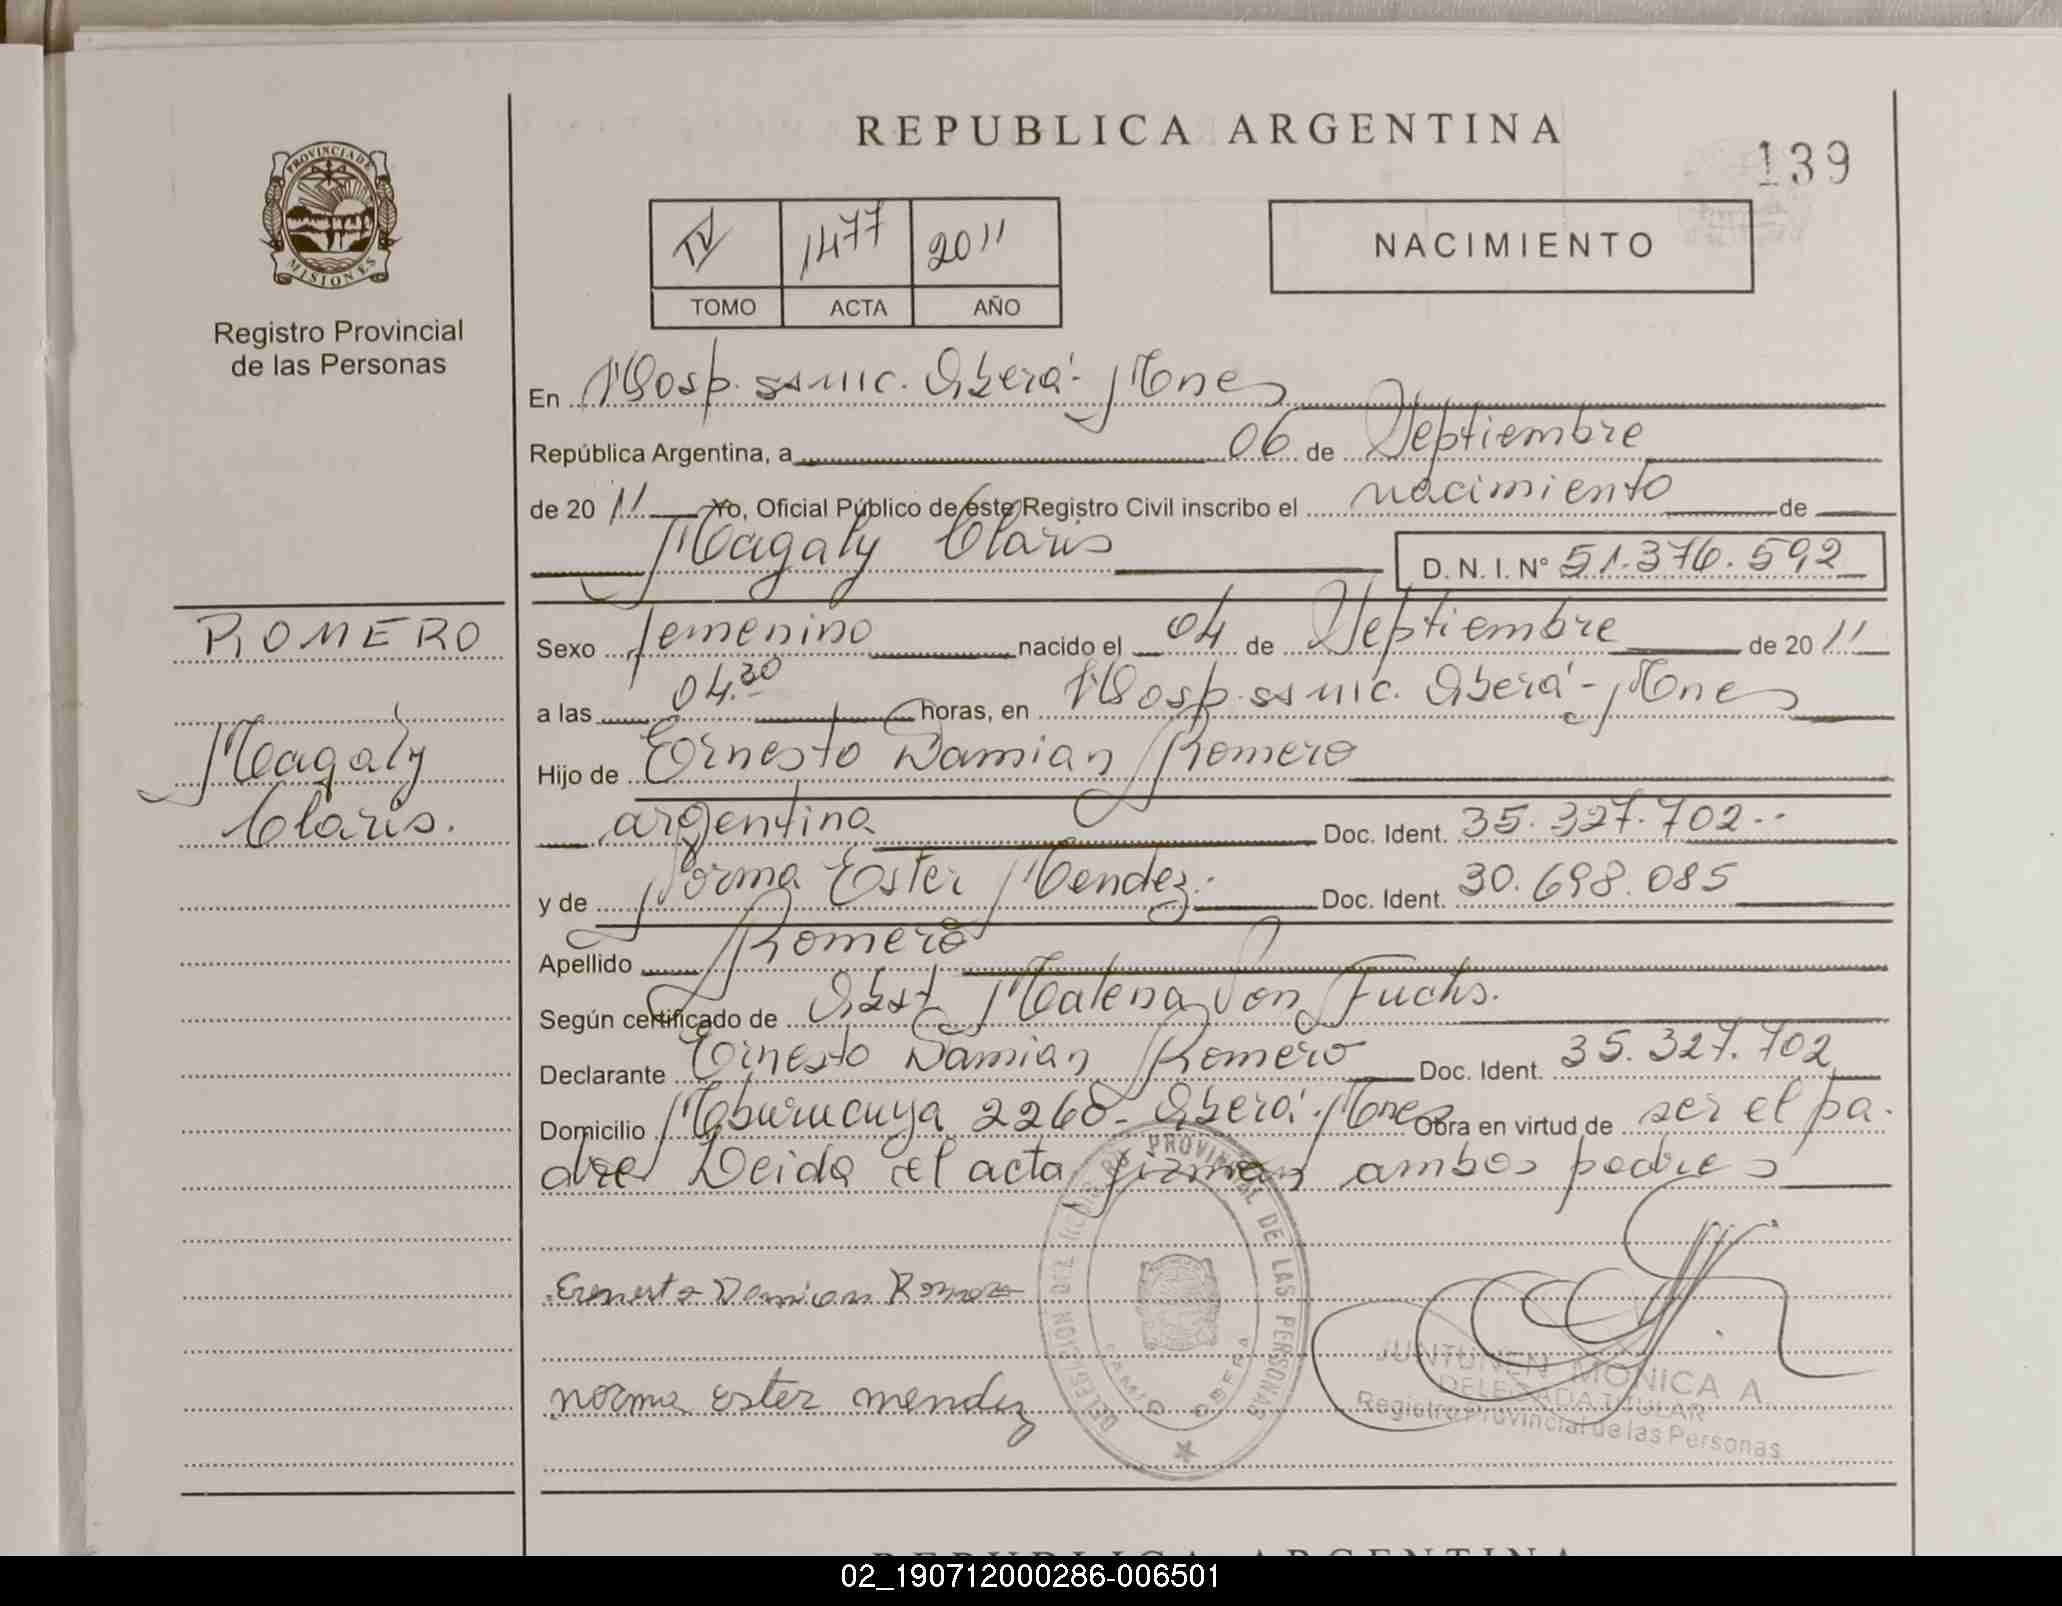 REPUBLICA ARGENTINA
139
PROVINCIA DE
MISIONES
Registro Provincial
de las Personas
IV 1477 2011
TOMO ACTA AÑO
NACIMIENTO
En Hosp. ssmic. Oberá - Mnes
República Argentina, a 06 de Septiembre
de 2011 Yo, Oficial Público de este Registro Civil inscribo el nacimiento de
Magaly Claris D.N.I. Nº 51.376.592
ROMERO
Magaly
Claris.
Sexo femenino nacido el 04 de Septiembre de 2011
a las 04.30 horas, en Hosp. ssmic. Oberá - Mnes
Hijo de Ernesto Damian Romero
argentina Doc. Ident. 35.327.702--
y de Norma Ester Mendez.- Doc. Ident. 30.698.085
Apellido Romero
Según certificado de Obst. Malena Von Fuchs.
Declarante Ernesto Damian Romero Doc. Ident. 35.327.702
Domicilio Mburucuya 2268- Oberá - Mnes Obra en virtud de ser el pa-
dre Leida el acta firman ambos padres
Erenesto Damian Romero
norma ester mendez
DELEGACION DEL REGISTRO PROVINCIAL DE LAS PERSONAS
OBERA
JUNTUNEN MONICA A.
DELEGADA TITULAR
Registro Provincial de las Personas
REPUBLICA ARGENTINA
02_190712000286-006501